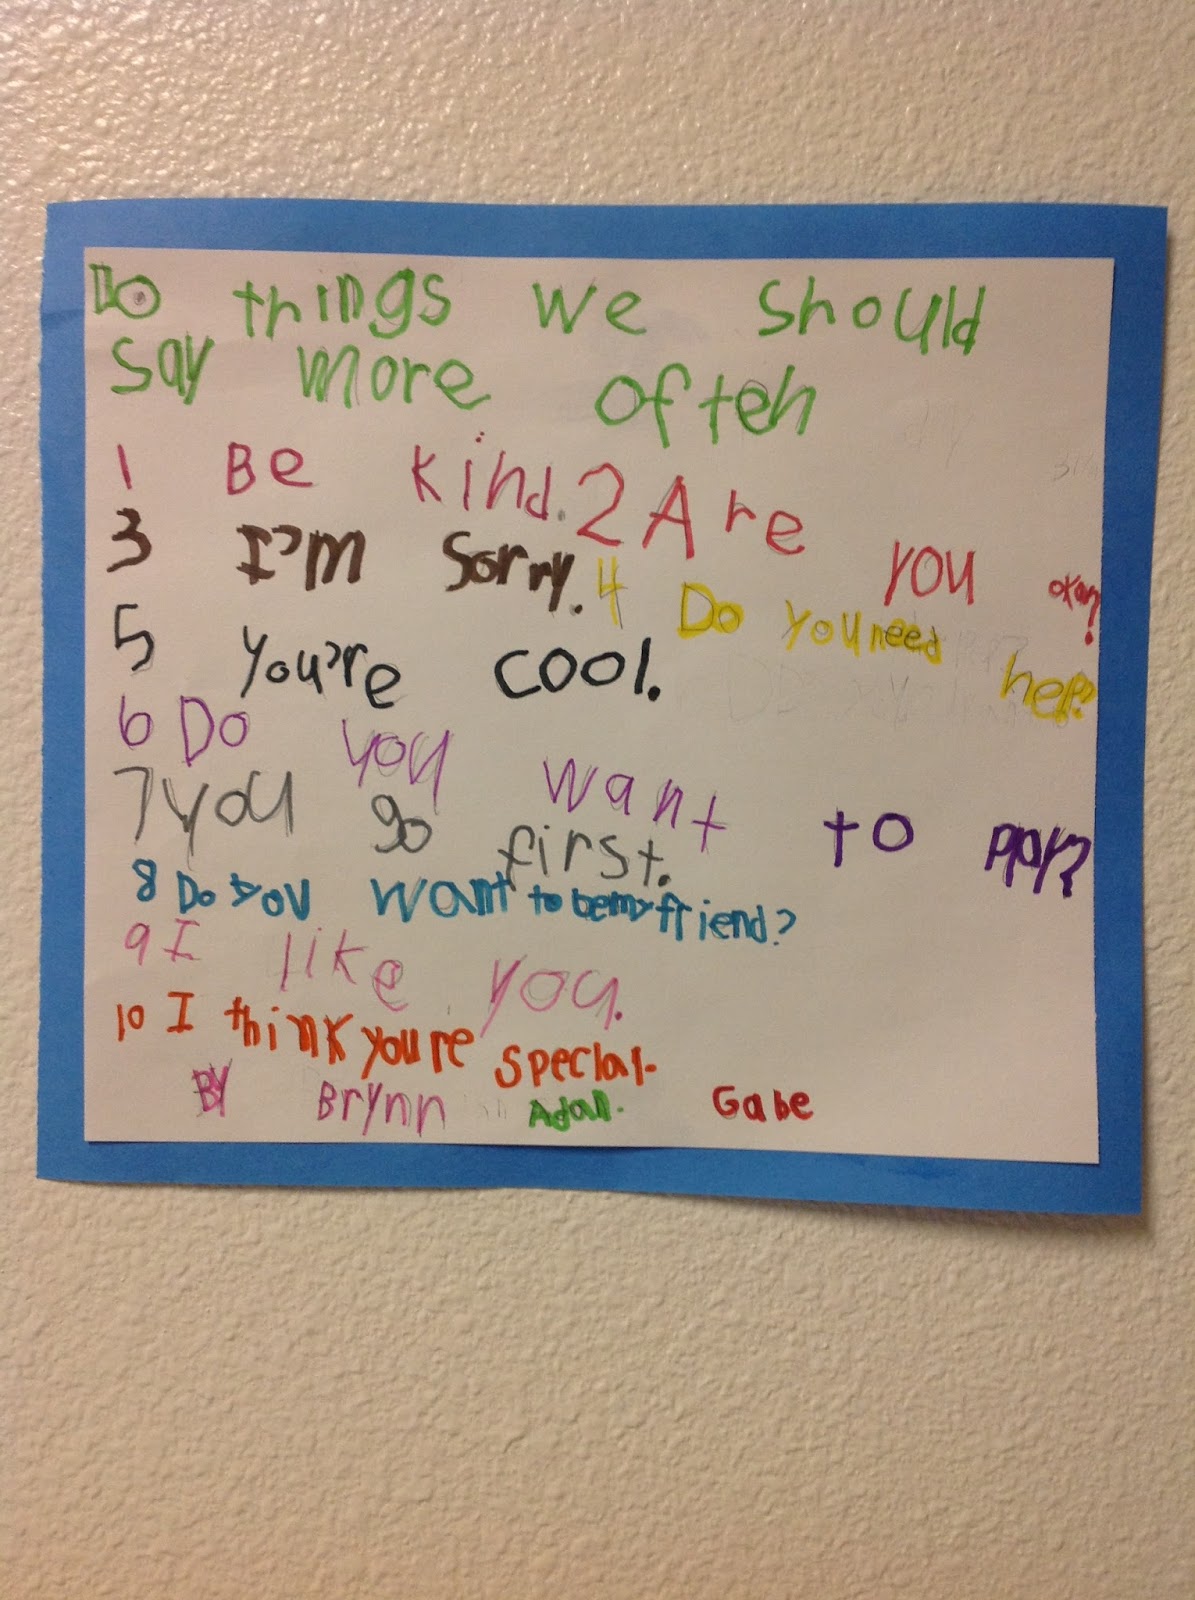 10 things we should
say more often
1 Be kind. 2 Are you okay?
3 I'm sorry. 4 Do you need help?
5 you're cool.
6 Do you want to play?
7 you go first.
8 Do you want to be my friend?
9 I like you.
10 I think you're special.
By Brynn Adan. Gabe